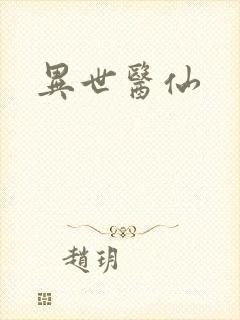 異世醫仙
趙玥